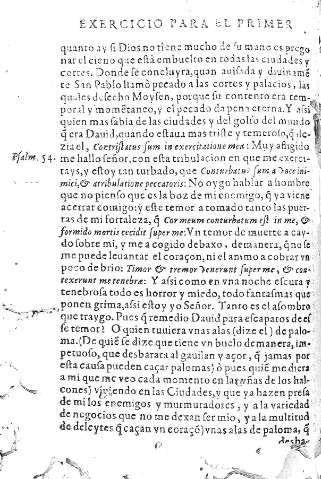 EXERCICIO PARA EL PRIMER
quanto ay si Dios no tiene mucho de su mano es prego
nar el cieno que está embuelto en todas las ciudades y
cortes. Donde se concluyra, quan auisada y diuinamẽ
te San Pablo llamò pecado a las cortes y palacios, las
quales desecho Moysen, porque su contento era tem
poral y mometaneo, y el pecado da pena eterna. Y assi
quien mas sabia de las ciudades y del golfo del mundo
q̃ era Dauid, quando estaua mas triste y temeroso, q̃ de
zia el, Cõtristatus sum in exercitatione mea: Muy afligido
Psalm. 54.
me hallo señor, con esta tribulacion en que me exerci-
tays, y estoy tan turbado, que Conturbatus sum a voce ini-
mici, & a tribulatione peccatoris: No oygo hablar a hombre
que no pienso que es la boz de mi enemigo, q̃ ya viene
acercar comigo: y este temor a tomado tanto las puer-
tas de mi fortaleza, q̃ Cor meum conturbatum est in me, &
formido mortis cecidit super me: Vn temor de muerte a cay-
do sobre mi, y me a cogido debaxo, demanera, q̃ no se
me puede leuantar el coraçon, ni el animo a cobrar vn
poco de brio: Timor & tremor venerunt super me, & con-
texerunt me tenebræ: Y assi como en vna noche escura y
tenebrosa todo es horror y miedo, todo fantasmas que
ponen grima, assi estoy yo Señor. Tanto es el asombro
que traygo. Pues q̃ remedio Dauid para escaparos de es
se temor? O quien tuuiera vnas alas (dize el) de palo-
ma. (De quiẽ se dize que tiene vn buelo demanera, im-
petuoso, que desbarata al gauilan y açor, q̃ jamas por
esta causa pueden caçar palomas) ò pues quiẽ me diera
a mi que me veo cada momento en las vñas de los hal-
cones) viuiendo en las Ciudades, y que ya hazen presa
de mi los enemigos y murmuradores, y a la variedad
de negocios que no me dexan ser mio, y a la multitud
de deleytes q̃ caçan vn coraçõ) vnas alas de paloma, q̃